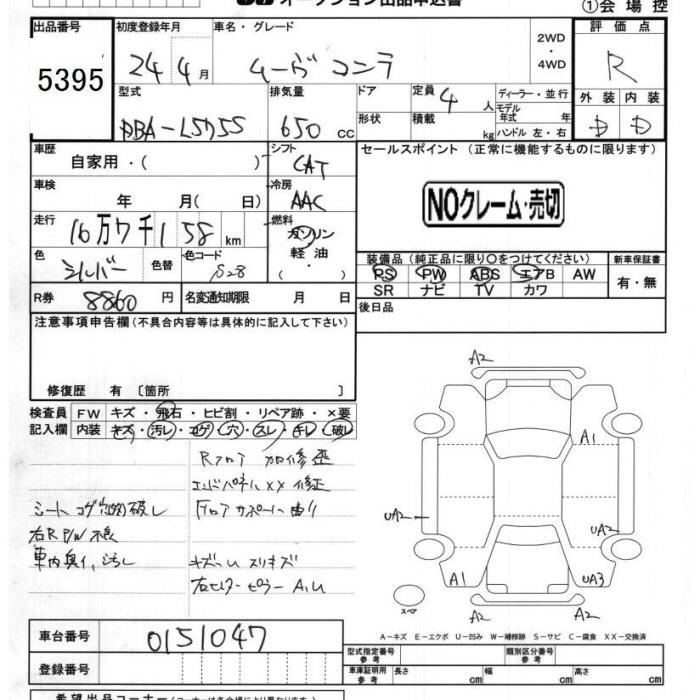 オークション出品申込書
①会場控
出品番号 初度登録年月 車名・グレード 2WD ・ 4WD 評価点
5395 24年4月 ムーヴコンテ R
型式 排気量 ドア 定員 4人 ディーラー・並行 外装 内装
DBA-L575S 650cc 形状 積載 kg モデル年式 年 ハンドル 左・右 D D
車歴 自家用・( ) シフト CAT セールスポイント (正常に機能するものに限ります)
車検 年 月( 日) 冷房 AAC
NOクレーム・売切
走行 16万7千158km 燃料 ガソリン・軽油・( )
色 シルバー 色替 色コード S28
装備品(純正品に限り○をつけてください) 新車保証書
PS PW ABS エアB AW 有・無
SR ナビ TV カワ
R券 8860円 名変通知期限 月 日 後日品
注意事項申告欄(不具合内容等は具体的に記入して下さい)
修復歴 有 〔箇所 〕
検査員 FW キズ・飛石・ヒビ割・リペア跡・×要
記入欄 内装 キズ・汚レ・コゲ・穴・スレ・キレ・破レ
Rフロア 加修歪
エンドパネルXX 修正
シートコゲ穴 破レ
Fロアサポート曲り
右RP/W不良
車内臭イ、汚レ
キズ凹スリキズ
右センターピラーA,U
A2
A1
UA2
UA2
A1
UA3
A2
A2
スペア
A-キズ E-エクボ U-凹み W-補修跡 S-サビ C-腐食 XX-交換済
車台番号 0151047
型式指定番号 参考 類別区分番号 参考
登録番号
車庫証明用 参考 長さ cm 幅 cm 高さ cm
希望出品コーナー